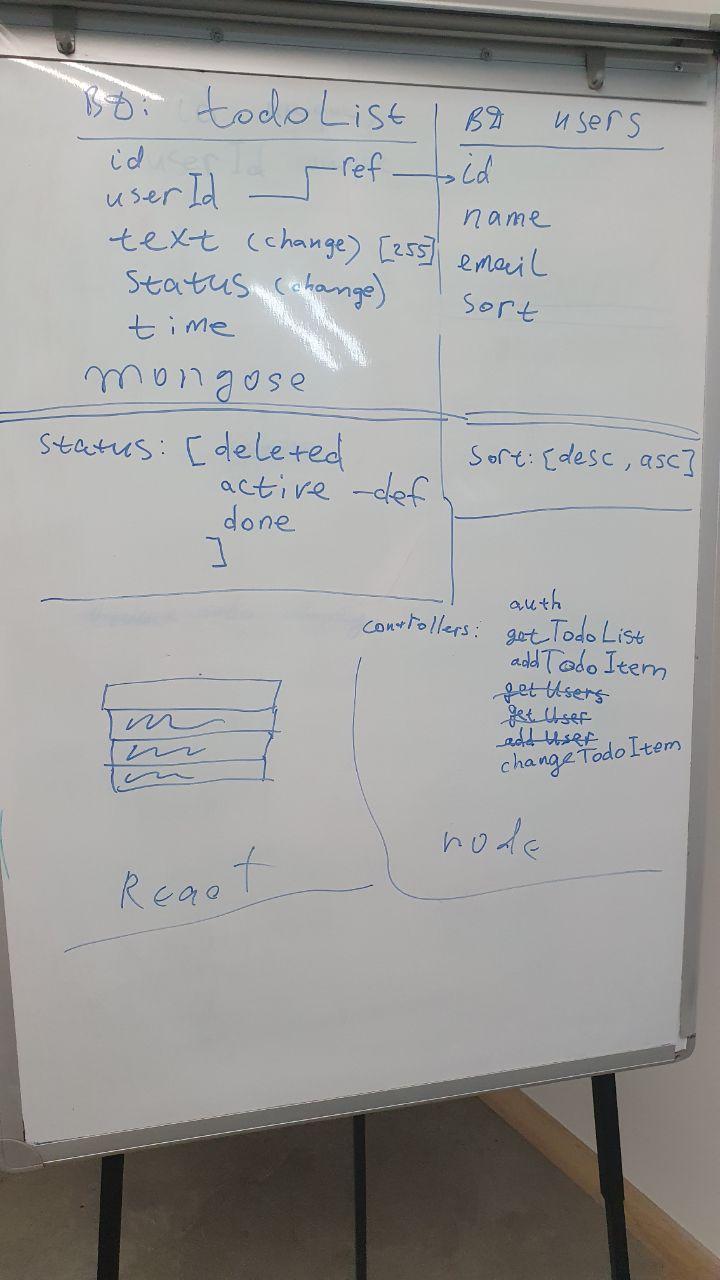 БД: todoList
id
userId ref
text (change) [255]
status (change)
time
mongose
БД users
id
name
email
sort
status: [deleted
active - def
done
]
sort: [desc, asc]
controllers:
auth
getTodoList
addTodoItem
get Users
get User
add User
changeTodoItem
React
node